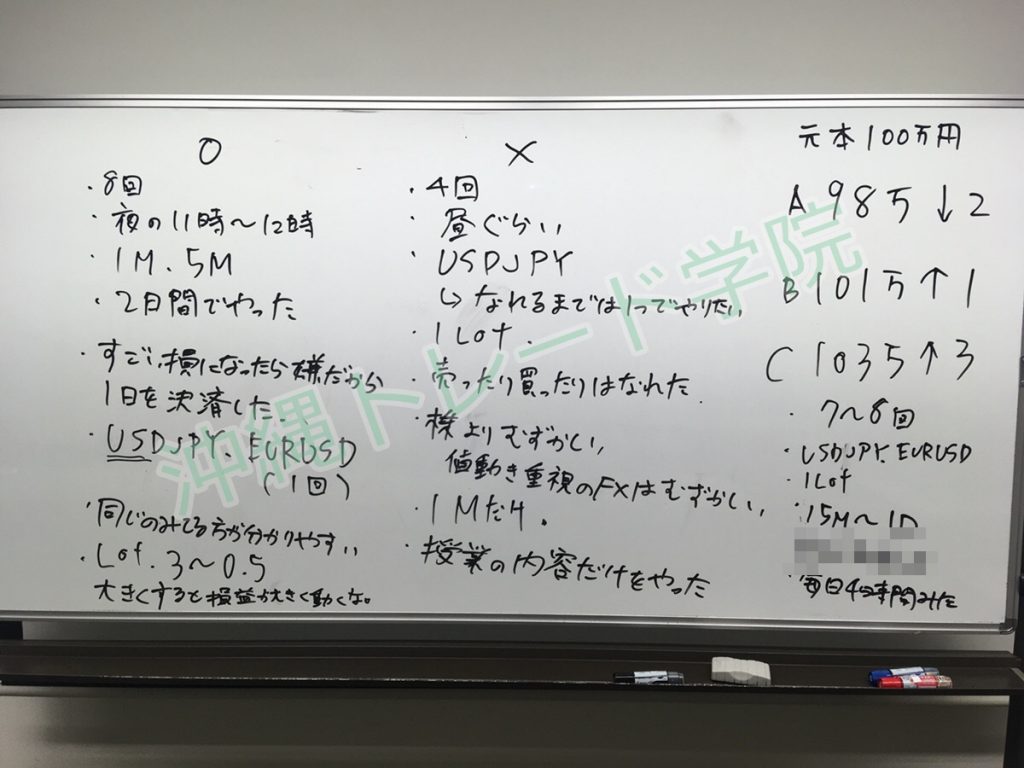 ○
・8回
・夜の11時～12時
・1M、5M
・2日間でやった
・すごい損になったら嫌だから
1日を決済した。
・USDJPY、EURUSD
(1回)
同じのみてる方が分かりやすい
・Lot.3～0.5
大きくすると損益が大きく動くな。
×
・4回
・昼ぐらい
・USDJPY
↳なれるまでは1つでやりたい
・1Lot.
・売ったり買ったりはなれた.
・株よりむずかしい,
値動き重視のFXはむずかしい,
・1Mだけ.
・授業の内容だけをやった
元本100万円
A 98万↓2
B 101万↑1
C 103万↑3
・7～8回
・USDJPY、EURUSD
・1Lot
・15M～1D
・毎日4時間みた
沖縄トレード学院